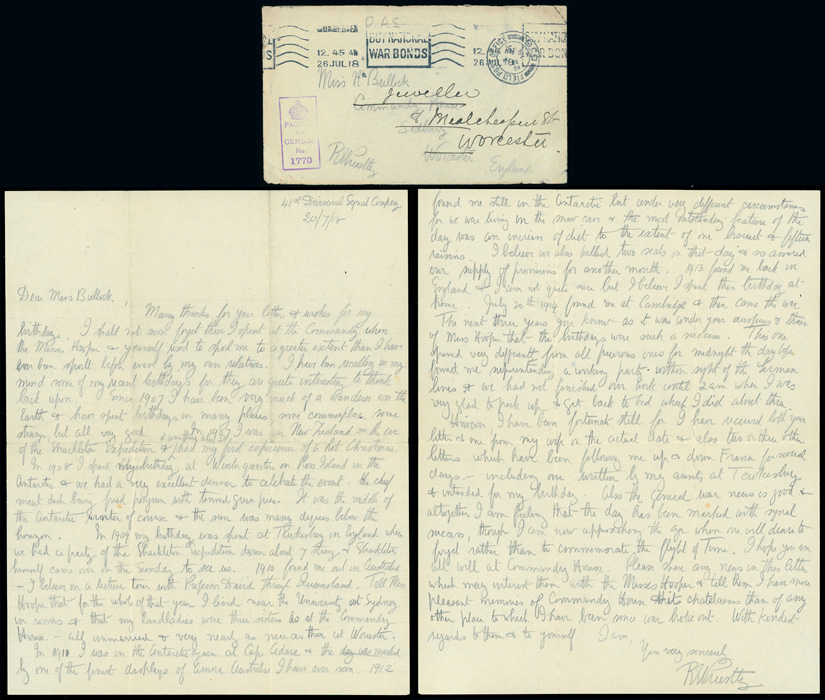 O.A.S.
12.45 AM
26 JUL 18
BUY NATIONAL
WAR BONDS
12.
26 JUL 18
FIELD POST OFFICE
Miss R Bullock
Jeweller
Commandery House
8 Mealcheapen St
Sidbury
Worcester
Worcester
England
PASSED
BY
CENSOR
No
1770
REPriestley
41st Divisional Signal Company
20/7/18
Dear Miss Bullock,
Many thanks for your letter & wishes for my
birthday. I shall not soon forget the I spent at the Commandery when
the Misses Hooper & yourself used to spoil me to a greater extent than I have
ever been spoilt before even by my own relatives. I have been recalling in my
mind some of my recent birthdays for they are quite interesting to think
back upon. Since 1907 I have been very much of a wanderer over the
Earth & have spent birthdays in many places some commonplace some
strange but all very good. In 1907 I was in New Zealand on the eve
of the Shackleton Expedition & had my first experience of a hot Christmas.
In 1908 I spent my birthday at Winter quarters on Ross Island in the
Antarctic & we had a very excellent dinner to celebrate the event the chief
meat dish being fried penguin with tinned green peas. It was the middle of
the Antarctic winter of course & the sun was many degrees below the
horizon. In 1909 my birthday was spent at Tewkesbury in England when
we had a party of the Shackleton Expedition down about 7 strong & Shackleton
himself came over on the Sunday to see us. 1910 found me out in Australia
– I believe on a lecture tour with Professor David through Queensland. Tell Miss
Hooper that for the whole of that year I lived near the University at Sydney
in rooms & that my landladies were three sisters as at the Commandery
House – all unmarried & very nearly as nice as those at Worcester.
In 1911 I was in the Antarctic again at Cape Adare & the day was marked
by one of the finest displays of Aurora Australis I have ever seen. 1912
found me still in the Antarctic but under very different circumstances
for we were living in the snow cave & the most outstanding feature of the
day was an increase of diet to the extent of one biscuit & fifteen
raisins. I believe we also killed two seals on that day & so assured
our supply of provisions for another month. 1913 found me back in
England & I am not quite sure but I believe I spent this birthday at
home. July 20th 1914 found me at Cambridge & then came the war.
The next three years you know as it was under your auspices & those
of Miss Hooper that the birthdays were such a success. This one
opened very different from all previous ones for midnight the day before
found me superintending a working party within sight of the German
lines & we had not finished our work until 2 am when I was
very glad to pack up & get back to bed which I did about three.
However I have been fortunate still for I have received both your
letter & one from my wife on the actual date & also two or three other
letters which have been following me up & down France for several
days – including one written by my aunts at Tewkesbury
& intended for my birthday. Also the general war news is good &
altogether I am feeling that the day has been marked with signal
success, though I am now approaching the age when one will desire to
forget rather than to commemorate the flight of Time. I hope you are
all well at Commandery House. Please share any news in this letter
which may interest them with the Misses Hooper & tell them I have more
pleasant memories of Commandery House & its chatelaines than of any
other place to which I have been since war broke out. With kindest
regards to them & to yourself I am,
Yrs very sincerely
REPriestley